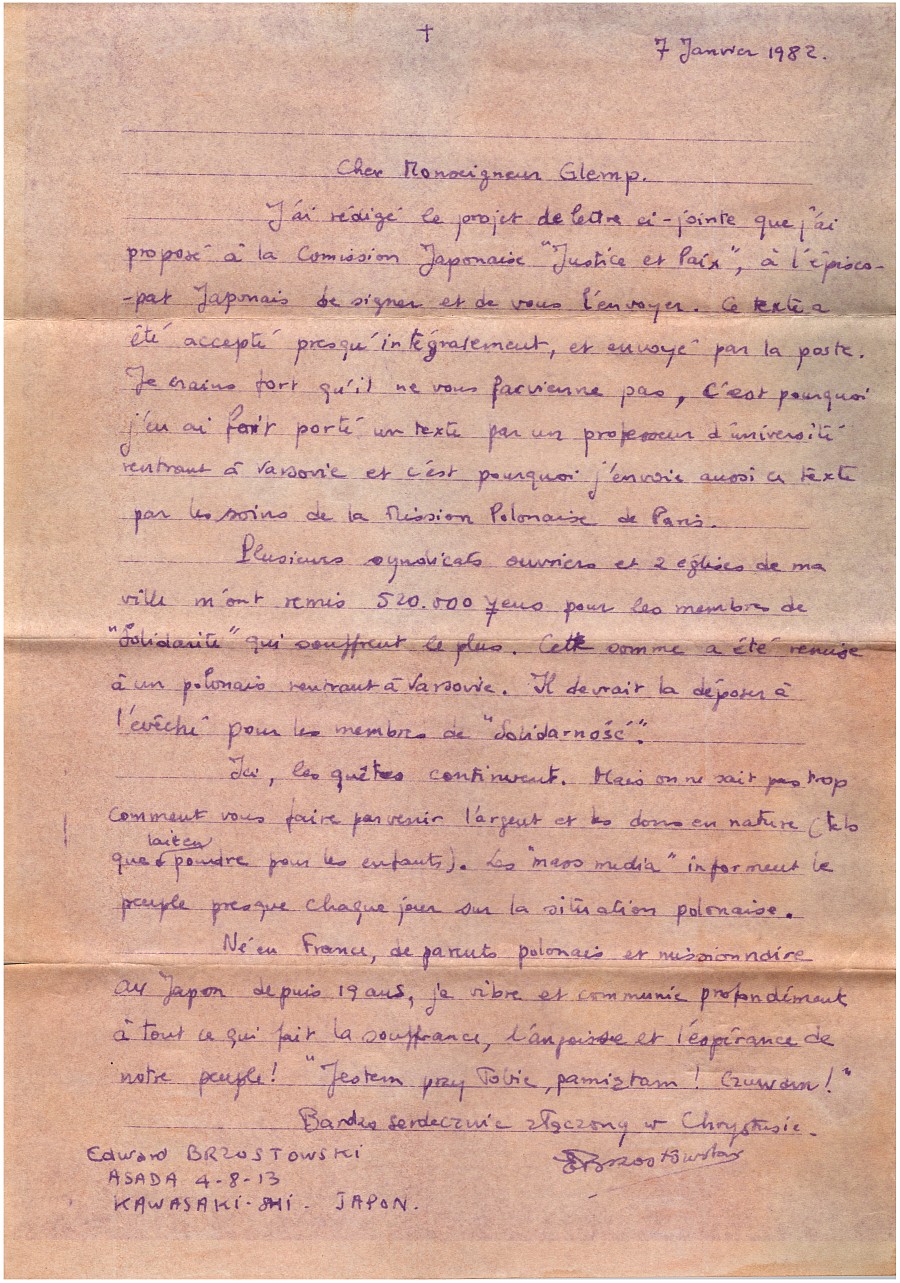 †
7 Janvier 1982.
Cher Monseigneur Glemp.
J'ai rédigé le projet de lettre ci-jointe que j'ai
proposé à la Comission Japonaise "Justice et Paix", à l'épisco-
-pat Japonais de signer et de vous l'envoyer. Ce texte a
été accepté presqu'intégralement, et envoyé par la poste.
Je crains fort qu'il ne vous parvienne pas, c'est pourquoi
j'en ai fait porté un texte par un professeur d'université
rentrant à Varsovie et c'est pourquoi j'envoie aussi ce texte
par les soins de la Mission Polonaise de Paris.
Plusieurs syndicats ouvriers et 2 églises de ma
ville m'ont remis 520.000 yens pour les membres de
"Solidarité" qui souffrent le plus. Cette somme a été remise
à un polonais rentrant à Varsovie. Il devrait la déposer à
l'évêché pour les membres de "Solidarność".
Ici, les quêtes continuent. Mais on ne sait pas trop
comment vous faire parvenir l'argent et les dons en nature (tels
lait en
que poudre pour les enfants). Les "mass media" informent le
peuple presque chaque jour sur la situation polonaise.
Né en France, de parents polonais et missionnaire
au Japon depuis 19 ans, je vibre et communie profondément
à tout ce qui fait la souffrance, l'angoisse et l'espérance de
notre peuple! "Jestem przy Tobie, pamiętam! Czuwam!"
Bardzo serdecznie złączony w Chrystusie.
Edward BRZOSTOWSKI
EBrzostowski
ASADA 4-8-13
KAWASAKI-SHI. JAPON.